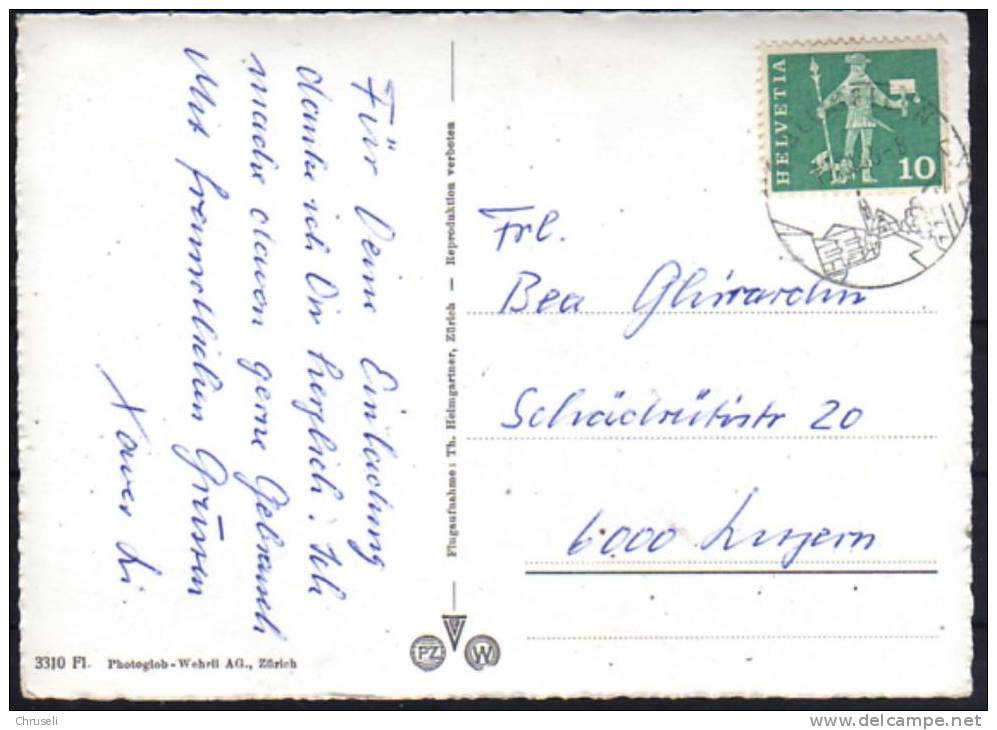 Für Deine Einladung
danke ich Dir herzlich. Ich
mache davon gerne Gebrauch
Mit freundlichen Grüssen
Xaver
Flugaufnahme: Th. Heimgartner, Zürich — Reproduktion verboten
HELVETIA
10
Frl.
Bea Ghirardin
Schädrütistr 20
6000 Luzern
PZ W
3310 Fl. Photoglob-Wehrli AG., Zürich
Chruseli
www.delcampe.net